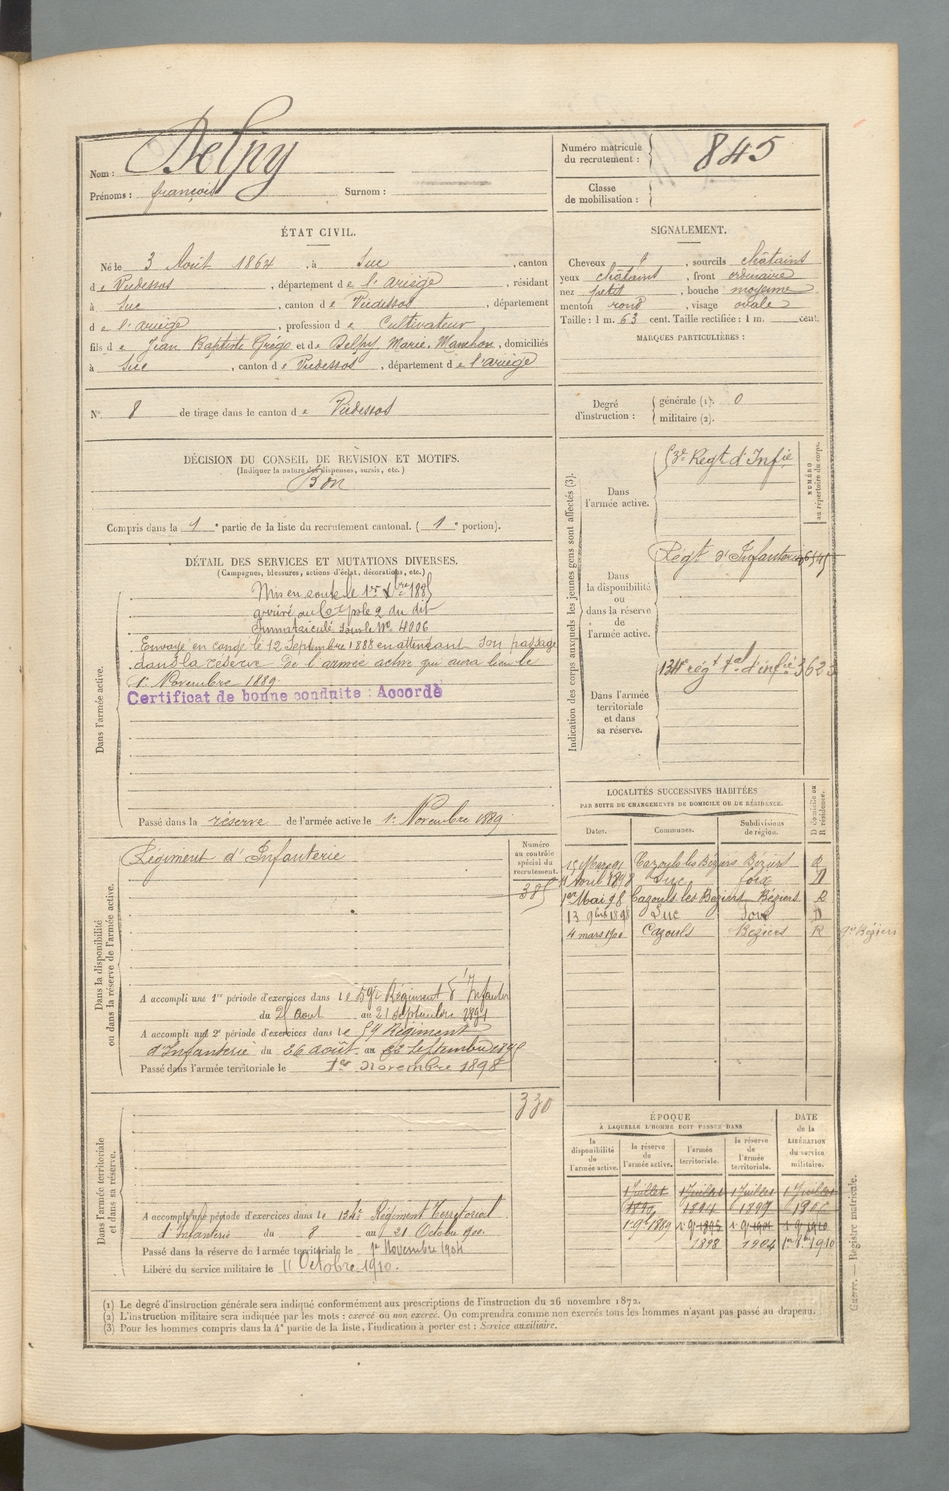 Nom : Delpy
Prénoms : françois Surnom :
Numéro matricule du recrutement : 845
Classe de mobilisation :
ÉTAT CIVIL.
Né le 3 Août 1864, à Suc, canton
de Vicdessos, département de l'ariège, résidant
à Suc, canton de Vicdessos, département
de l'ariège, profession de Cultivateur
fils de Jean Baptiste Grégo et de Delpy, Marie, Manchon, domiciliés
à Suc, canton de Vicdessos, département de l'ariège
N° 8 de tirage dans le canton de Vicdessos
SIGNALEMENT.
Cheveux , sourcils châtains
yeux châtains, front ordinaire
nez petit, bouche moyenne
menton rond, visage ovale
Taille : 1 m. 63 cent. Taille rectifiée : 1 m. cent.
MARQUES PARTICULIÈRES :
Degré d'instruction : générale (1). 0
militaire (2).
DÉCISION DU CONSEIL DE RÉVISION ET MOTIFS.
(Indiquer la nature des dispenses, sursis, etc.)
Bon
Compris dans la 1e partie de la liste du recrutement cantonal. (1e portion).
DÉTAIL DES SERVICES ET MUTATIONS DIVERSES.
(Campagnes, blessures, actions d'éclat, décorations, etc.)
Dans l'armée active.
Mis en route le 1er Xbre 1885
arrivé au Corps le 2 du dit
Immatriculé sous le No 4006
Envoyé en congé le 12 Septembre 1888 en attendant son passage
dans la réserve de l'armée active qui aura lieu le
1er Novembre 1889
Certificat de bonne conduite : Accordé
Passé dans la réserve de l'armée active le 1er Novembre 1889
Indication des corps auxquels les jeunes gens sont affectés (3).
NUMÉRO au répertoire du corps.
Dans l'armée active.
53e Regt d'Infie
Dans la disponibilité ou dans la réserve de l'armée active.
Régt d'Infanterie
Dans l'armée territoriale et dans sa réserve.
134e régt tal d'infie 3623
Dans la disponibilité ou dans la réserve de l'armée active.
Régiment d'Infanterie
Numéro au contrôle spécial du recrutement.
385
A accompli une 1re période d'exercices dans le 59e Régiment d'Infanterie
du 25 août au 21 Septembre 1891
A accompli une 2e période d'exercices dans le 59 Régiment
d'Infanterie du 26 août au 22 Septembre
Passé dans l'armée territoriale le 1er Novembre 1898
LOCALITÉS SUCCESSIVES HABITÉES
PAR SUITE DE CHANGEMENTS DE DOMICILE OU DE RÉSIDENCE.
Dates. Communes. Subdivisions de région. D domicile ou R résidence.
15 Mars 91 Cazouls les Béziers Béziers R
11 Avril 1898 Suc Foix D
1er Mai 98 Cazouls les Beziers Béziers R
13 9bre 1898 Suc Foix D
4 mars 1900 Cazouls Beziers R
Dans l'armée territoriale et dans sa réserve.
330
A accompli une période d'exercices dans le 134e Régiment Territorial
d'Infanterie du 8 au 21 Octobre 1900
Passé dans la réserve de l'armée territoriale le 1er Novembre 1904
Libéré du service militaire le 11 Octobre 1910.
ÉPOQUE
À LAQUELLE L'HOMME DOIT PASSER DANS
DATE de la LIBÉRATION du service militaire.
la disponibilité de l'armée active. la réserve de l'armée active. l'armée territoriale. la réserve de l'armée territoriale.
1 Juillet 1 Juillet 1 Juillet 1 Juillet
1890 1894 1899 1906
1er 9bre 1889 1er 9bre 1895 1er 9bre 1901 1er 9bre 1910
1898 1904 1er 8bre 1910
(1) Le degré d'instruction générale sera indiqué conformément aux prescriptions de l'instruction du 26 novembre 1872.
(2) L'instruction militaire sera indiquée par les mots : exercé ou non exercé. On comprendra comme non exercés tous les hommes n'ayant pas passé au drapeau.
(3) Pour les hommes compris dans la 4e partie de la liste, l'indication à porter est : Service auxiliaire.
Guerre. — Registre matricule.